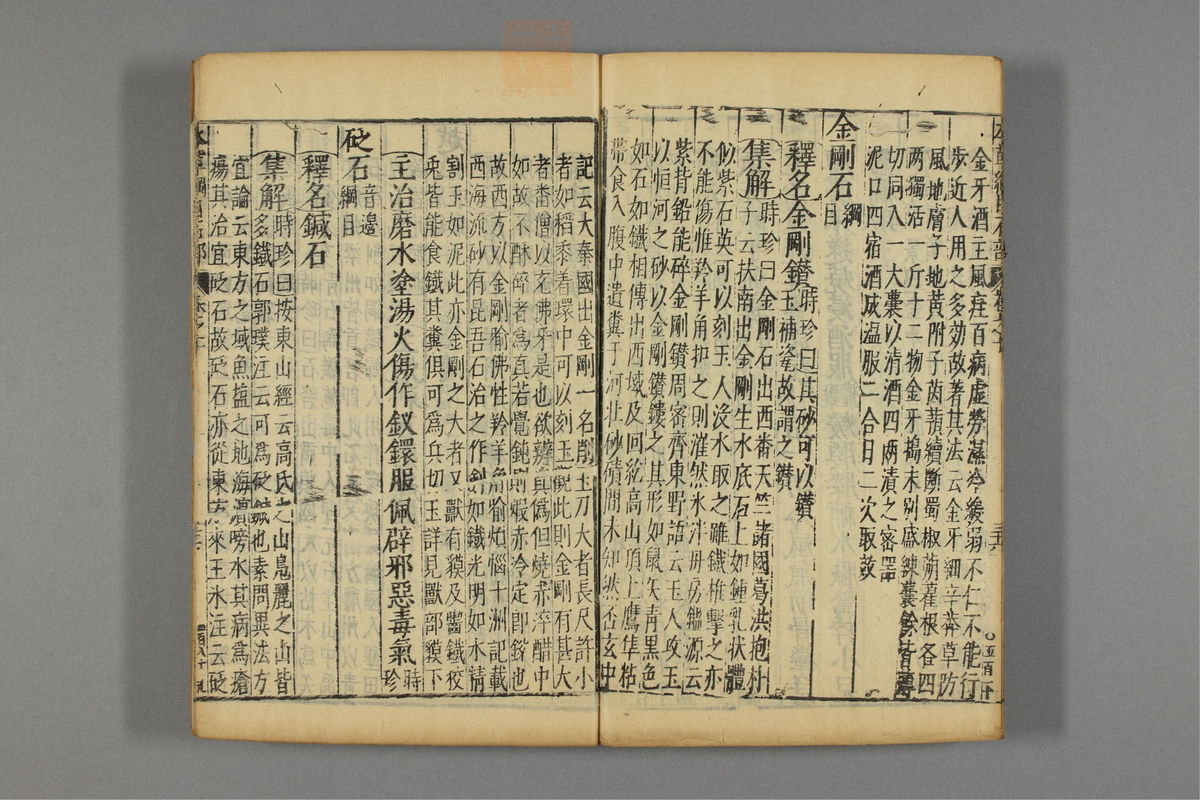 金牙酒主風疰百病虛勞濕冷緩弱不仁不能行
步近人用之多効故著其法云金牙細辛莽草防
風地膚子地黃附子茵蕷續斷蜀椒蒴藋根各四
两獨活一斤十二物金牙搗末别盛練囊餘皆薄
切同入一大囊以清酒四两漬之密器
泥口四宿酒成温服二合日二次取效
金剛石綱目
釋名金剛鑽時珍曰其砂可以鑽玉補瓷故謂之鑽
集解時珍曰金剛石出西番天竺諸國葛洪抱朴
子云扶南出金剛生水底石上如鍾乳狀體
似紫石英可以刻玉人沒水取之雖鐵椎擊之亦
不能傷惟羚羊角扣之則漼然冰泮丹房鑑源云
紫背鉛能碎金剛鑽周密齊東野語云玉人攻玉
以恒河之砂以金剛鑽鏤之其形如鼠矢青黑色
如石如鐵相傳出西域及回紇高山頂上鷹隼粘
帶食入腹中遺糞于河北砂磧間未知然否玄中
記云大秦國出金剛一名削玉刀大者長尺許小
者如稻黍着環中可以刻玉觀此則金剛有甚大
者番僧以充佛牙是也欲辨真偽但燒赤淬醋中
如故不酥碎者為真若覺鈍則煅赤冷定即銳也
故西方以金剛喻佛性羚羊角喻煩惱十洲記載
西海流砂有昆吾石治之作劍如鐵光明如水精
割玉如泥此亦金剛之大者又獸有貘及齧鐵狡
兎皆能食鐵其糞俱可為兵切玉詳見獸部貘下
主治磨水塗湯火傷作釵鐶服佩辟邪惡毒氣時珍
砭石音邉綱目
釋名鍼石
集解時珍曰按東山經云高氏之山鳧麗之山皆
多鐵石郭璞注云可為砭鍼也素問異法方
宜論云東方之域魚鹽之地海濱傍水其病為瘡
瘍其治宜砭石故砭石亦從東方來王冰注云砭